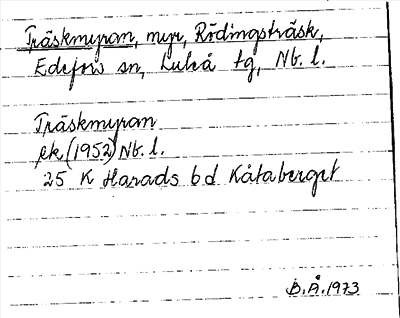 Träskmyran, myr, Rödingsträsk,
Edefors sn, Luleå tg, Nb. l.
Träskmyran
ek (1952) Nb. l.
25 K Harads bd Kåtaberget
B.Å. 1973